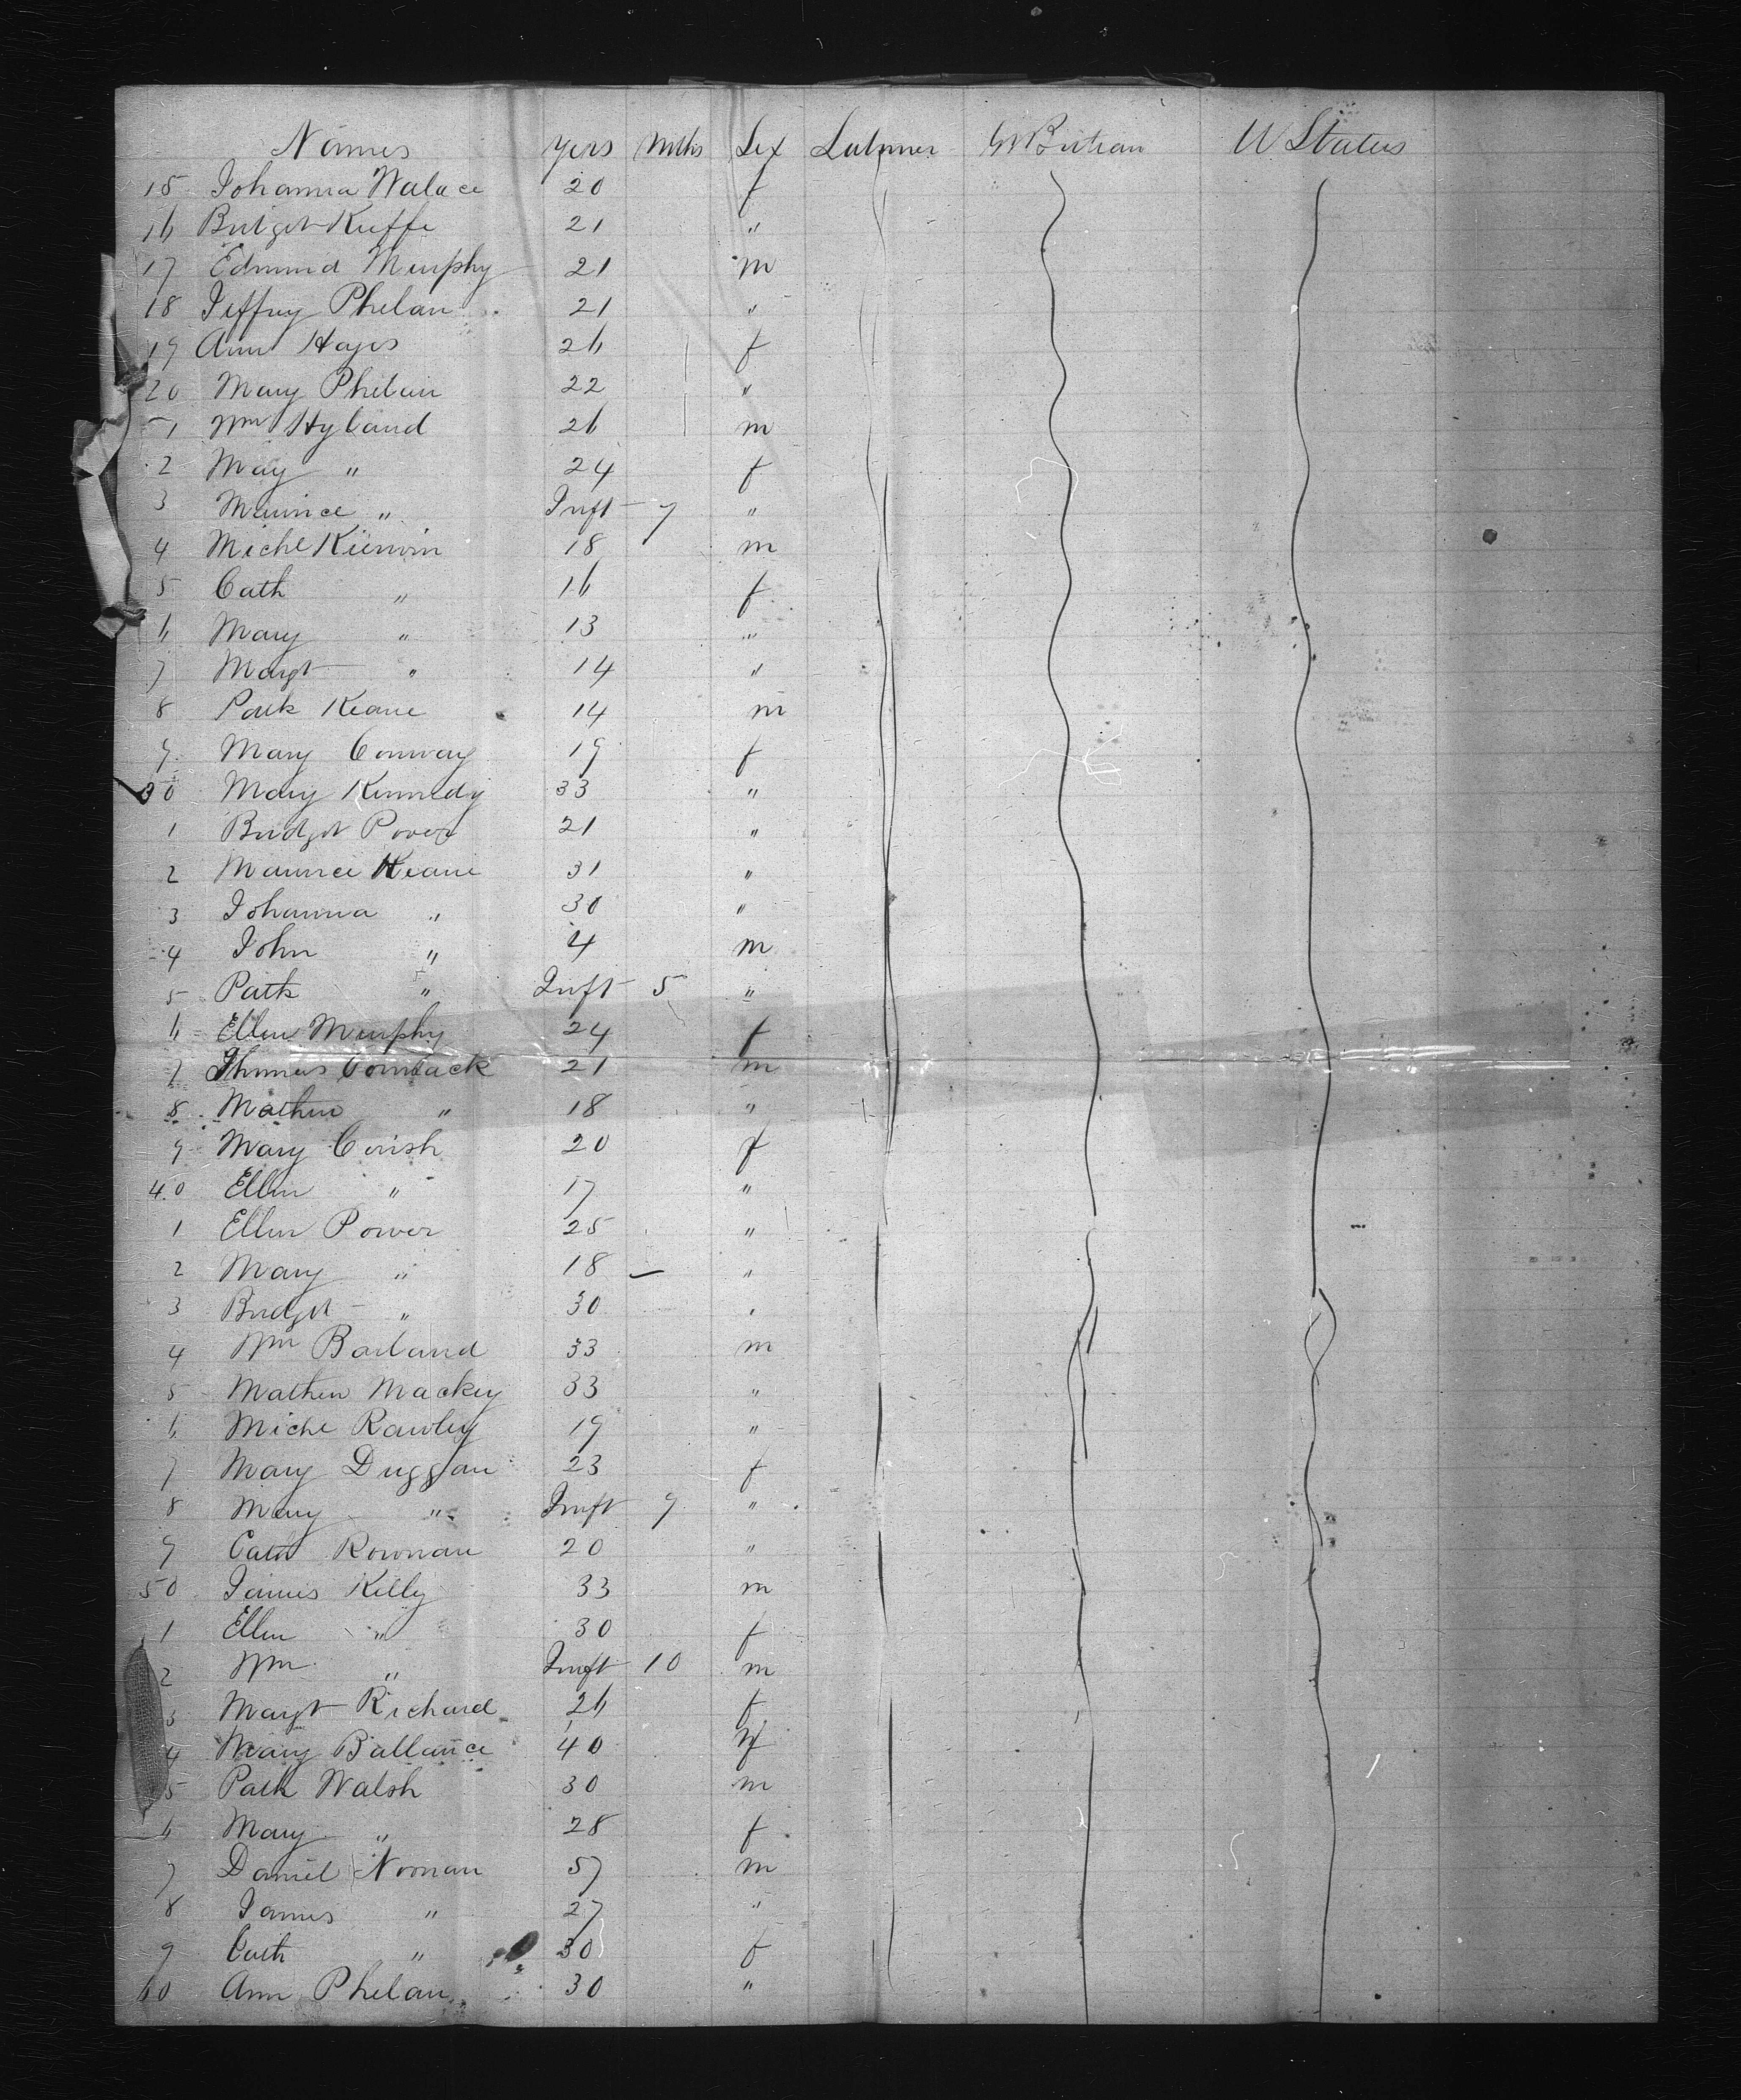 Names yers Mths Sex Labourer Gt Britian U States
15 Johanna Walace 20 f
16 Bridget Keeffe 21 "
17 Edmund Murphy 21 m
18 Jeffry Phelan 21 "
19 Ann Hayes 26 f
20 Mary Phelan 22 "
1 Wm Hyland 26 m
2 Mary " 24 f
3 Maurice " Inft 7 "
4 Michl Kierwin 18 m
5 Cath " 16 f
6 Mary " 13 "
7 Margt " 14 "
8 Patk Keane 14 m
9 Mary Conway 19 f
30 Mary Kennedy 33 "
1 Bridget Power 21 "
2 Maurice Keane 31 "
3 Johanna " 30 "
4 John " 4 m
5 Patk " Inft 5 "
6 Ellen Murphy 24 f
7 Thomas Comback 21 m
8 Mathew " 18 "
9 Mary Cerish 20 f
40 Ellen " 17 "
1 Ellen Power 25 "
2 Mary " 18 "
3 Bridget " 30 "
4 Wm Barland 33 m
5 Mathew Mackey 33 "
6 Michl Rawley 19 "
7 Mary Duggan 23 f
8 Mary " Inft 9 "
9 Cath Rownan 20 "
50 James Kelly 33 m
1 Ellen " 30 f
2 Wm " Inft 10 m
3 Margt Richard 26 f
4 Mary Ballance 40 f
5 Patk Walsh 30 m
6 Mary " 28 f
7 Daniel Noonan 57 m
8 James " 27 "
9 Cath " 30 f
60 Ann Phelan 30 "